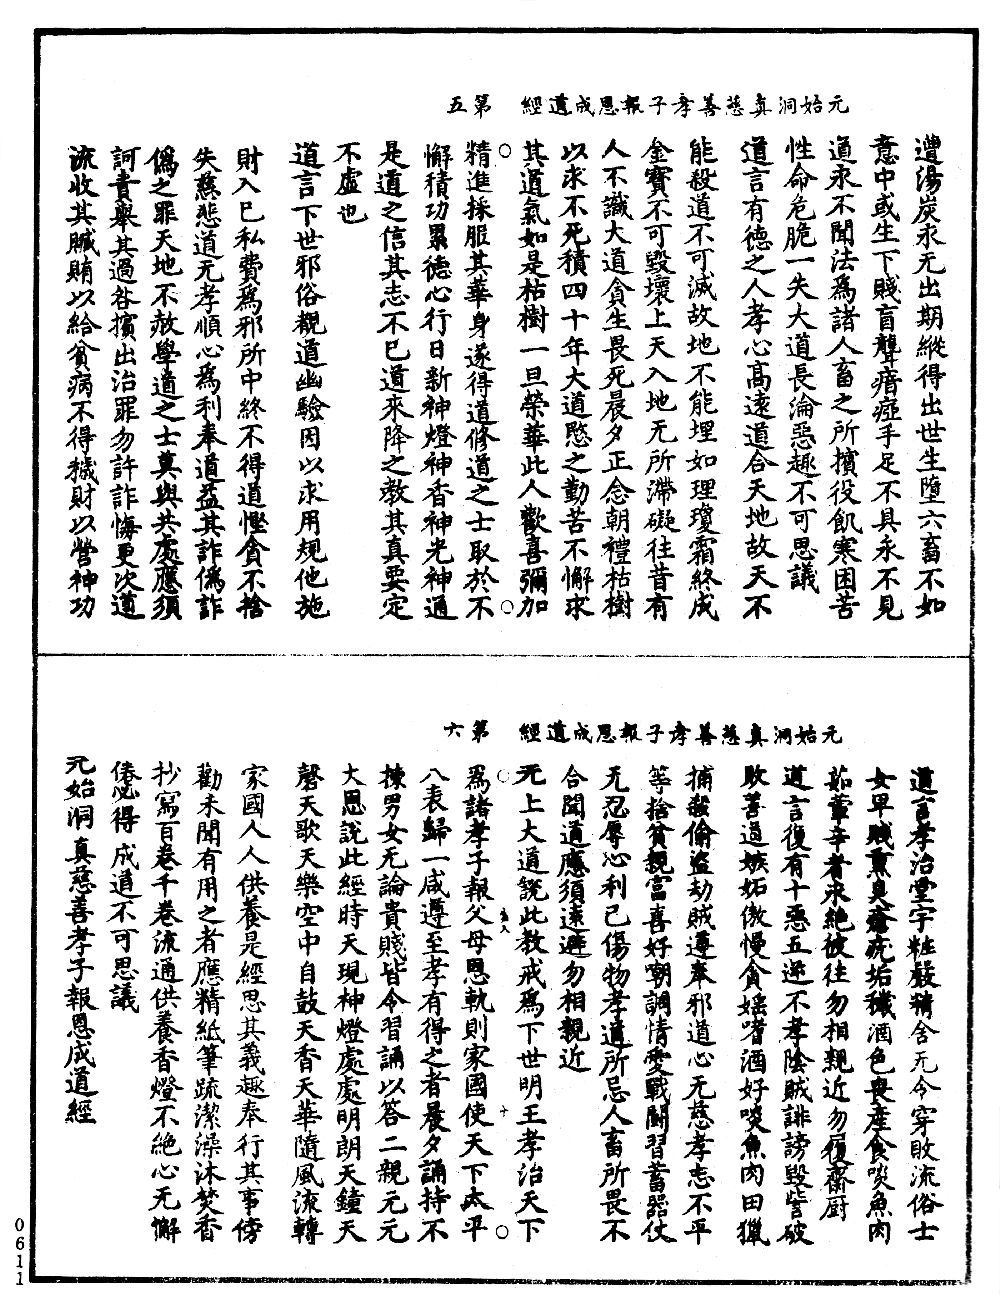 元始洞真慈善孝子報恩成道經　第五
遭湯炭永无出期縱得出世生墮六畜不如
意中或生下賤盲聾瘖瘂手足不具永不見
道永不聞法為諸人畜之所擯役飢寒困苦
性命危脆一失大道長淪惡趣不可思議
道言有德之人孝心高遠道合天地故天不
能殺道不可滅故地不能埋如理瓊霜終成
金寶不可毀壞上天入地无所滯礙往昔有
人不識大道貪生畏死晨夕正念朝禮枯樹
以求不死積四十年大道愍之勤苦不懈求
其道氣如是枯樹一旦榮華此人歡喜彌加
精進採服其華身遂得道修道之士取於不
懈積功累德心行日新神燈神香神光神通
是道之信其志不已道來降之教其真要定
不虛也
道言下世邪俗觀道幽驗因以求用規他施
財入己私費為邪所中終不得道慳貪不捨
失慈悲道无孝順心為利奉道益其詐偽詐
偽之罪天地不赦學道之士莫與共處應須
訶責舉其過咎擯出治罪勿許詐悔更次道
流收其贓賄以給貧病不得穢財以營神功
元始洞真慈善孝子報恩成道經　第六
道言孝治堂宇粧嚴精舍无令穿敗流俗士
女卑賤熏臭瘡疣垢穢酒色喪產食啖魚肉
茹葷辛者來絕彼往勿相親近勿履齋厨
道言復有十惡五逆不孝陰賊誹謗毀訾破
敗善道嫉妬傲慢貪婬嗜酒好啖魚肉田獵
捕殺偷盜劫賊遵奉邪道心无慈孝志不平
等捨貧親富喜好嘲調情愛戰鬭習蓄器仗
无忍辱心利己傷物孝道所忌人畜所畏不
合聞道應須遠避勿相親近
无上大道說此教戒為下世明王孝治天下
為諸孝子報父母恩軌則家國使天下太平
八表歸一咸遵至孝有得之者晨夕誦持不
揀男女无論貴賤皆令習誦以答二親元元
大恩說此經時天現神燈處處明朗天鐘天
磬天歌天樂空中自鼓天香天華隨風流轉
家國人人供養是經思其義趣奉行其事傍
勸未聞有用之者應精紙筆疏潔澡沐焚香
抄寫百卷千卷流通供養香燈不絕心无懈
倦必得成道不可思議
元始洞真慈善孝子報恩成道經
0611